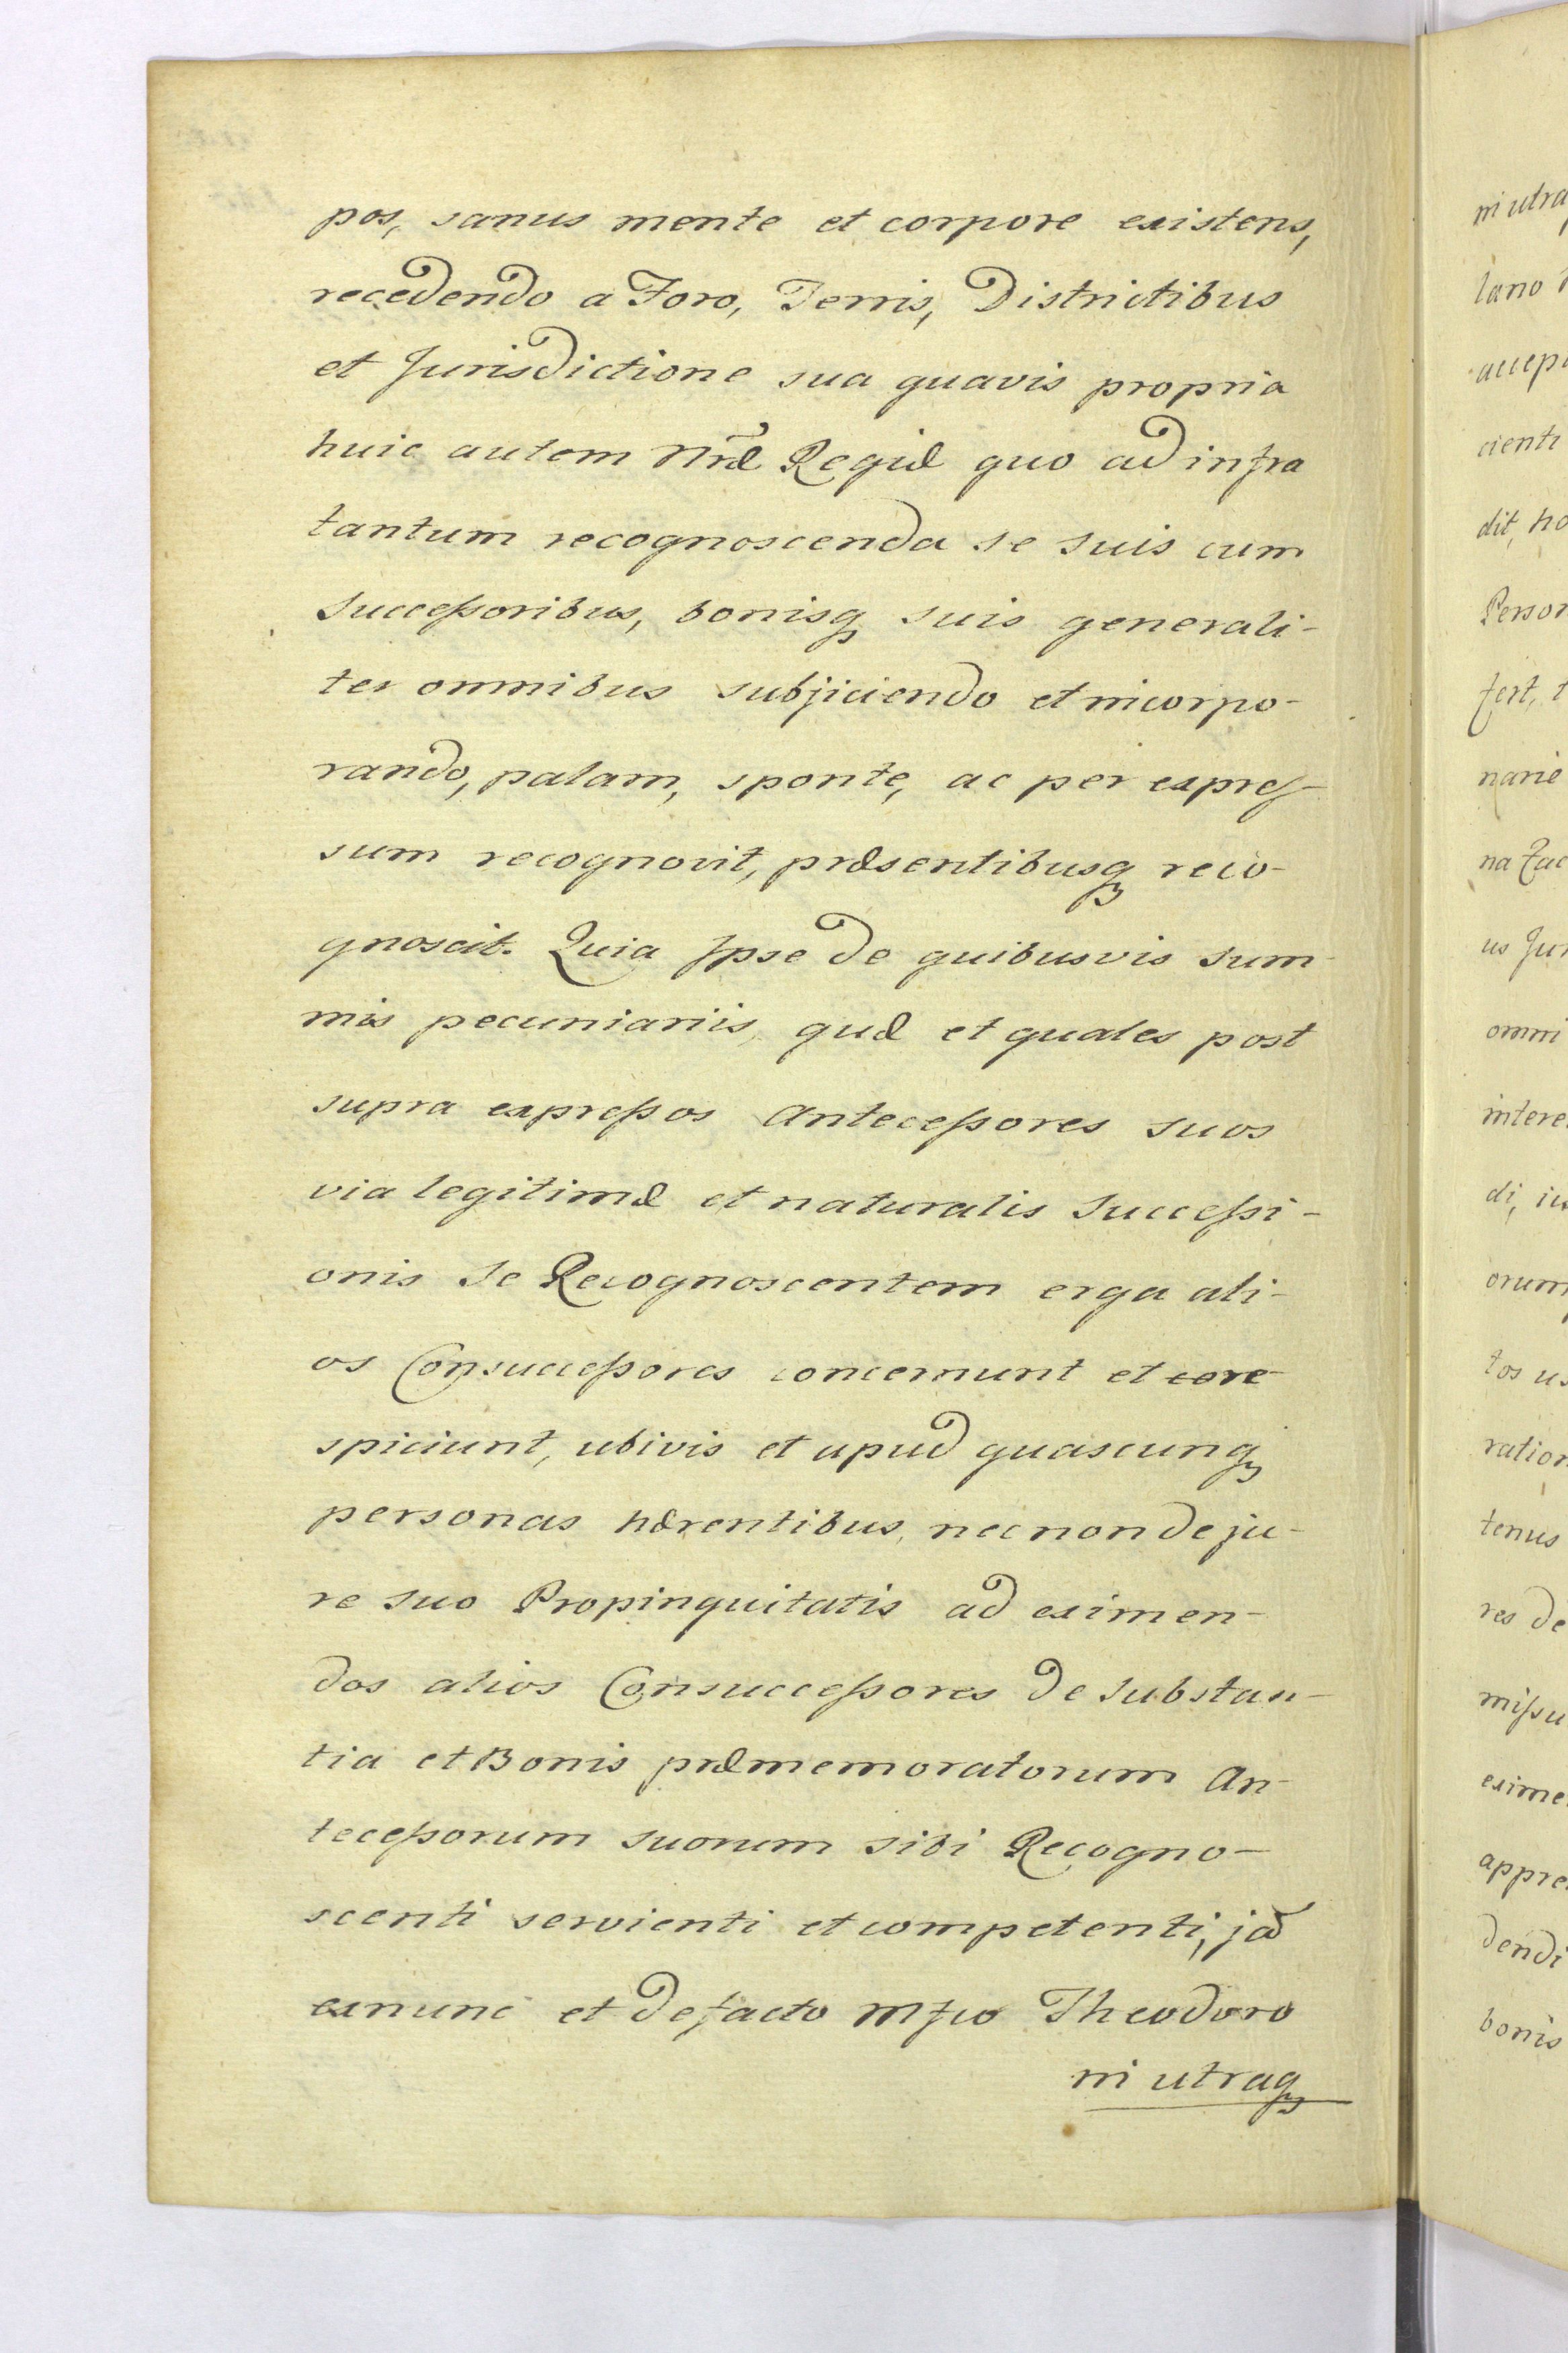 pos, sanus mente et corpore existens,
recedendo a Foro, Terris, Districtibus
et Jurisdictione sua quavis propria
huic autem Nræ Regiæ quo ad infra
tantum recognoscenda se suis cum
Successoribus, bonisq suis generali-
ter omnibus subjiciendo et incorpo-
rando, palam, sponte, ac per expres-
sum recognovit, præsentibusq reco-
gnoscit. Quia Ipse de quibusvis sum-
mis pecuniariis, quæ et quales post
supra expressos Antecessores suos
via legitimæ et naturalis Successi-
onis Se Recognoscentem erga ali-
os Consuccessores concernunt et core-
spiciunt, ubivis et apud quascunq
personas hærentibus, nec non de ju-
re suo Propinquitatis ad eximen-
dos alios Consuccessores de Substan-
tia et Bonis præmemoratorum An-
tecessorum suorum sibi Recogno-
scenti servienti et competenti, jã
exnunc et de facto Mfco Theodoro
in utraq
in utra
lano
accep
cienti
dit, ho
Person
fert, t
narie
na Zac
us Jur
omni
intere
di, iu
orum
tos us
ration
tenus
res de
missu
exime
appre
dendi
bonis